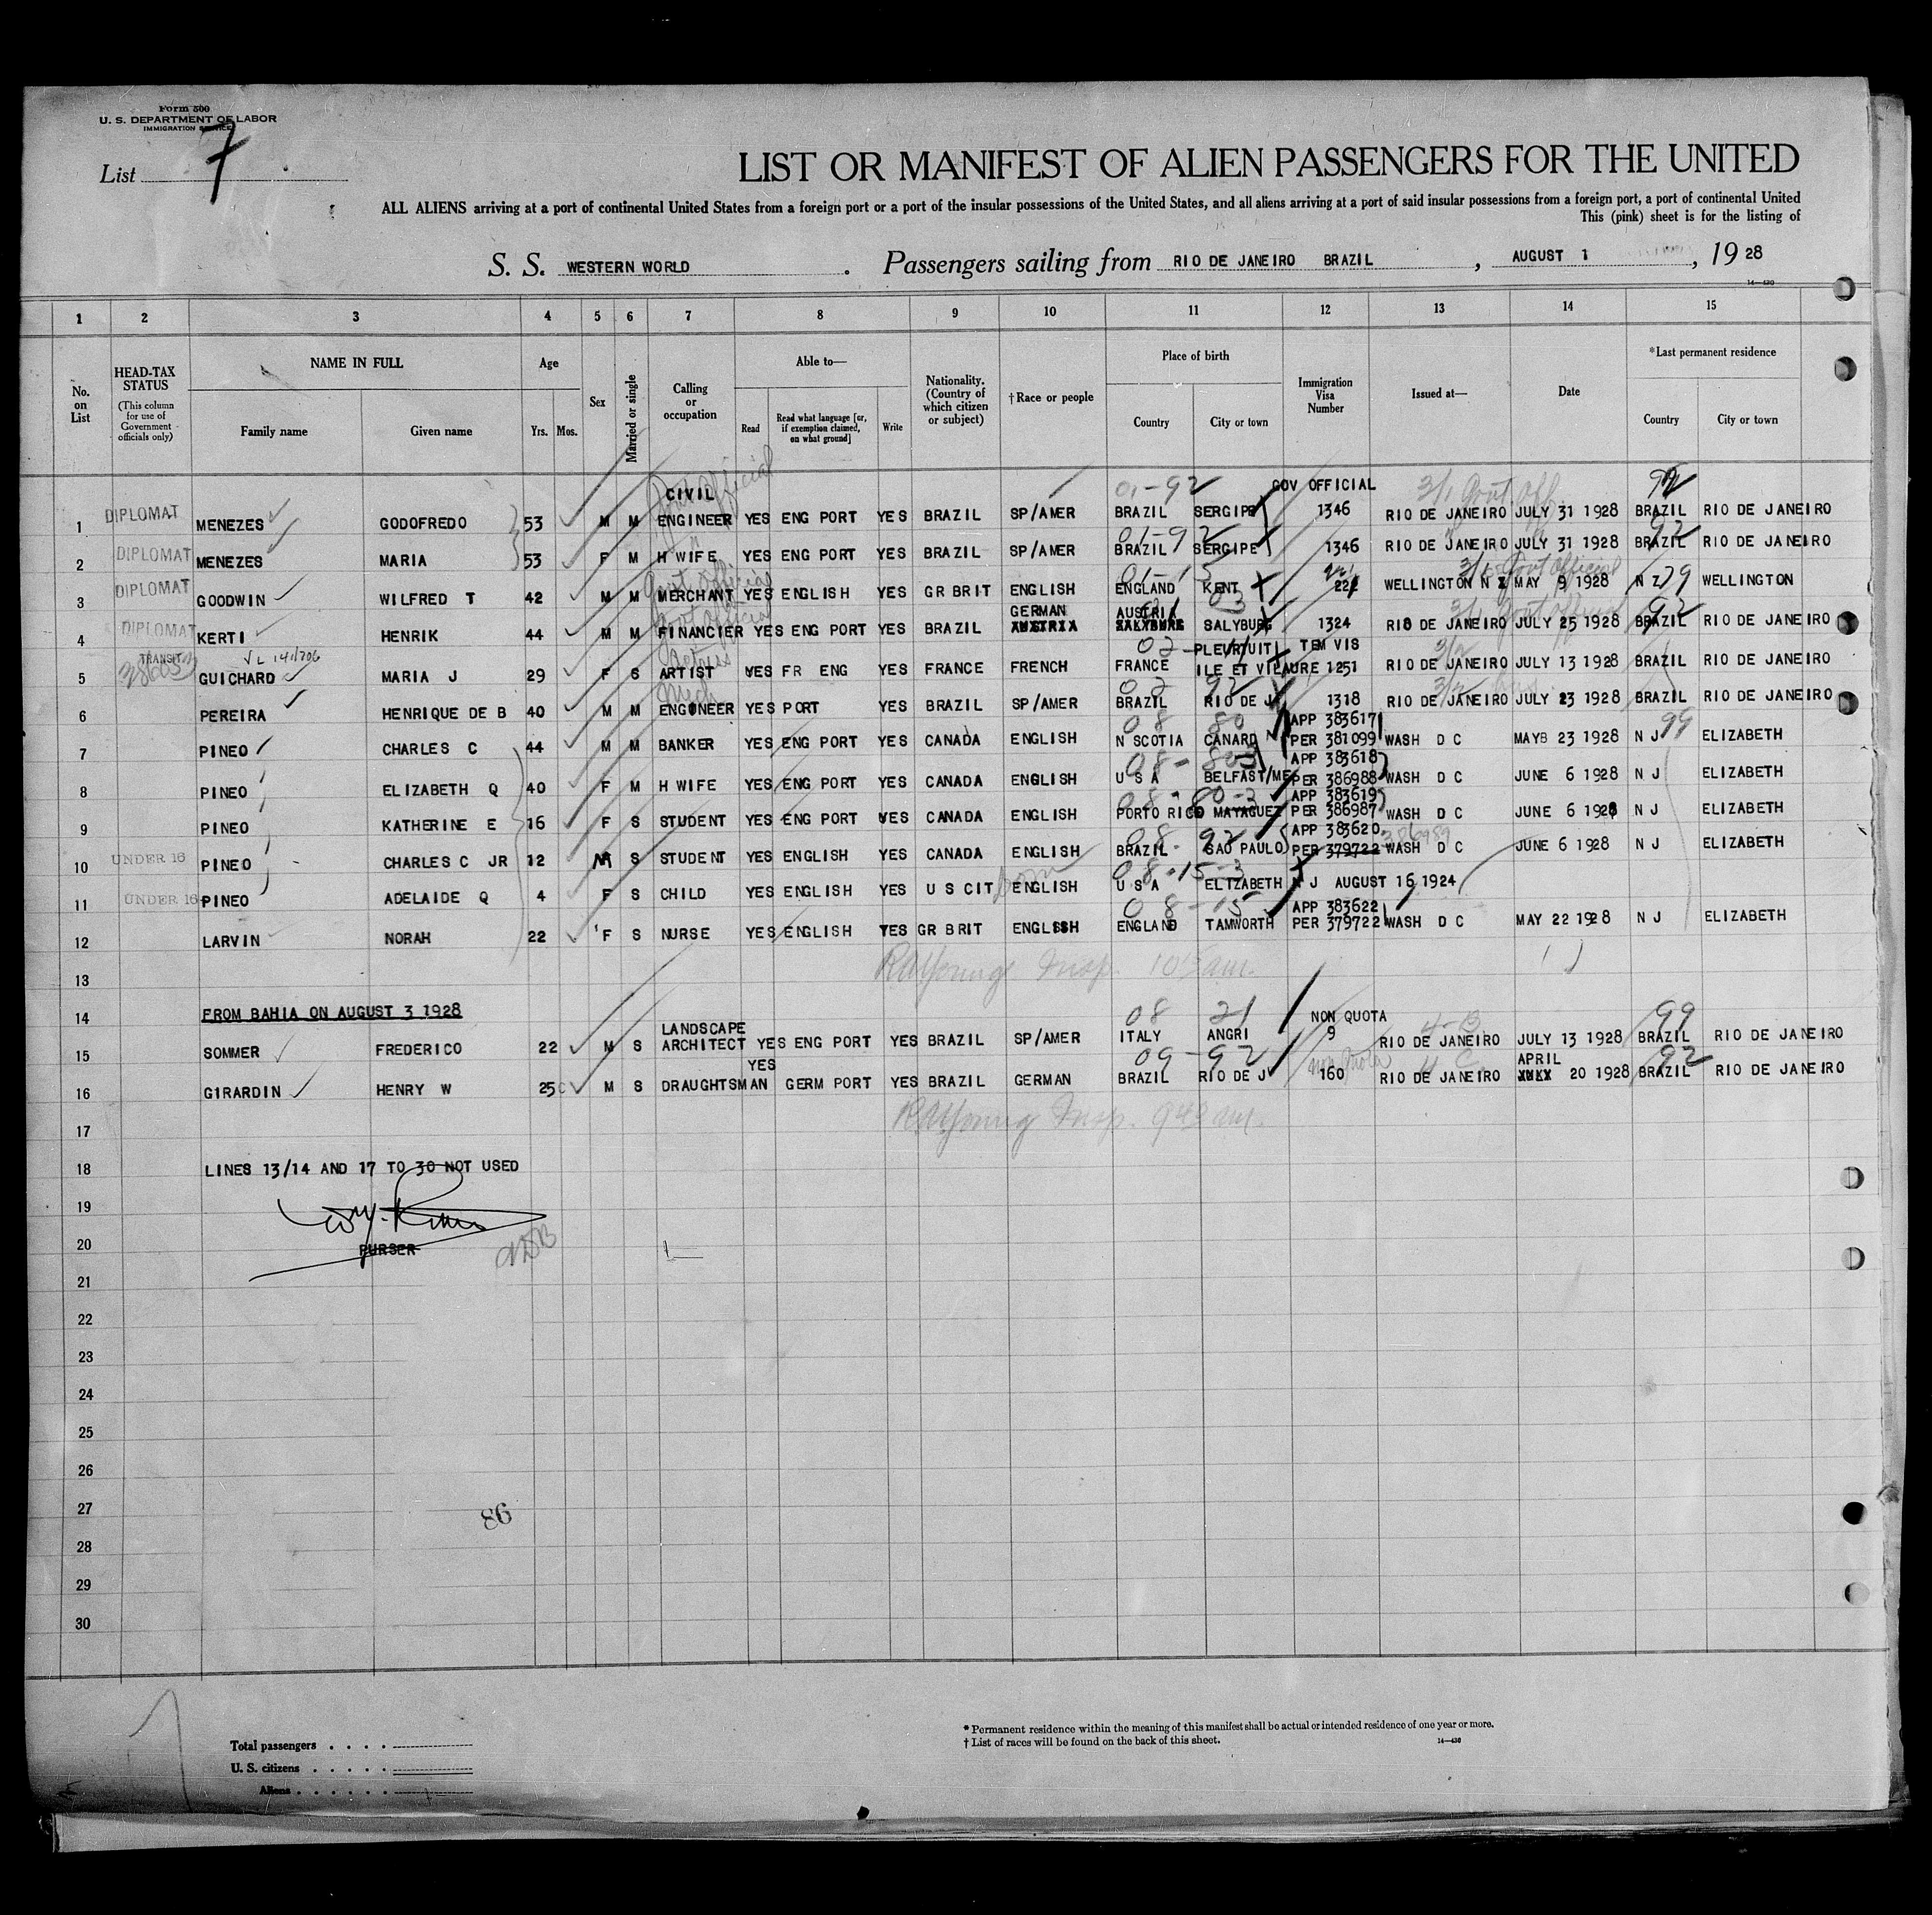 Form 500
U. S. DEPARTMENT OF LABOR
IMMIGRATION SERVICE
List 7
LIST OR MANIFEST OF ALIEN PASSENGERS FOR THE UNITED
ALL ALIENS arriving at a port of continental United States from a foreign port or a port of the insular possessions of the United States, and all aliens arriving at a port of said insular possessions from a foreign port, a port of continental United
This (pink) sheet is for the listing of
S. S. WESTERN WORLD . Passengers sailing from RIO DE JANEIRO BRAZIL , AUGUST 1 , 19 28
14—430
1 2 3 4 5 6 7 8 9 10 11 12 13 14 15
No. on List
HEAD-TAX STATUS
(This column for use of Government officials only)
NAME IN FULL
Family name
Given name
Age
Yrs. Mos.
Sex
Married or single
Calling or occupation
Able to—
Read
Read what language [or, if exemption claimed, on what ground]
Write
Nationality. (Country of which citizen or subject)
†Race or people
Place of birth
Country
City or town
Immigration Visa Number
Issued at—
Date
*Last permanent residence
Country
City or town
CIVIL 01-92 GOV OFFICIAL 3/1 Govt Off. 92
1 DIPLOMAT MENEZES GODOFREDO 53 M M ENGINEER YES ENG PORT YES BRAZIL SP/AMER BRAZIL SERGIPE 1346 RIO DE JANEIRO JULY 31 1928 BRAZIL RIO DE JANEIRO
01-92 92
2 DIPLOMAT MENEZES MARIA 53 F M H WIFE YES ENG PORT YES BRAZIL SP/AMER BRAZIL SERGIPE 1346 RIO DE JANEIRO JULY 31 1928 BRAZIL RIO DE JANEIRO
Govt Official 01-15 3/1 Govt Official
3 DIPLOMAT GOODWIN WILFRED T 42 M M MERCHANT YES ENGLISH YES GR BRIT ENGLISH ENGLAND KENT WELLINGTON N Z MAY 9 1928 N Z 79 WELLINGTON
Govt Official GERMAN AUSTRIA 03 3/1 Govt Official 92
4 DIPLOMAT KERTI HENRIK 44 M M FINANCIER YES ENG PORT YES BRAZIL AUSTRIA SALYBURG SALYBURG 1324 RIO DE JANEIRO JULY 25 1928 BRAZIL RIO DE JANEIRO
TRANSIT Actress 02 PLEURTUIT TEM VIS 3/2
5 GUICHARD MARIA J 29 F S ARTIST YES FR ENG YES FRANCE FRENCH FRANCE ILE ET VILAURE 1251 RIO DE JANEIRO JULY 13 1928 BRAZIL RIO DE JANEIRO
Mech 02 92 3/2
6 PEREIRA HENRIQUE DE B 40 M M ENGINEER YES PORT YES BRAZIL SP/AMER BRAZIL RIO DE J 1318 RIO DE JANEIRO JULY 23 1928 BRAZIL RIO DE JANEIRO
08 80 APP 383617 99
7 PINEO CHARLES C 44 M M BANKER YES ENG PORT YES CANADA ENGLISH N SCOTIA CANARD PER 381099 WASH D C MAYB 23 1928 N J ELIZABETH
APP 383618
8 PINEO ELIZABETH Q 40 F M H WIFE YES ENG PORT YES CANADA ENGLISH U S A BELFAST/ME PER 386988 WASH D C JUNE 6 1928 N J ELIZABETH
08-80-3 APP 383619
9 PINEO KATHERINE E 16 F S STUDENT YES ENG PORT YES CANADA ENGLISH PORTO RICO MAYAGUEZ PER 386987 WASH D C JUNE 6 1928 N J ELIZABETH
08-92 APP 383620 386989
10 UNDER 16 PINEO CHARLES C JR 12 M S STUDENT YES ENGLISH YES CANADA ENGLISH BRAZIL SAO PAULO PER 379722 WASH D C JUNE 6 1928 N J ELIZABETH
08-15-3
11 UNDER 16 PINEO ADELAIDE Q 4 F S CHILD YES ENGLISH YES U S CIT born ENGLISH U S A ELIZABETH N J AUGUST 16 1924
08-15 APP 383622
12 LARVIN NORAH 22 F S NURSE YES ENGLISH YES GR BRIT ENGLISH ENGLAND TAMWORTH PER 379722 WASH D C MAY 22 1928 N J ELIZABETH
13 RA Young Insp. 10 am.
14 FROM BAHIA ON AUGUST 3 1928
LANDSCAPE 08 21 NON QUOTA 4-B 99
15 SOMMER FREDERICO 22 M S ARCHITECT YES ENG PORT YES BRAZIL SP/AMER ITALY ANGRI 9 RIO DE JANEIRO JULY 13 1928 BRAZIL RIO DE JANEIRO
YES 09-92 non quota 4 C APRIL 92
16 GIRARDIN HENRY W 25 M S DRAUGHTSMAN GERM PORT YES BRAZIL GERMAN BRAZIL RIO DE J 160 RIO DE JANEIRO 20 1928 BRAZIL RIO DE JANEIRO
17 RA Young Insp. 943 am.
18 LINES 13/14 AND 17 TO 30 NOT USED
19
20 PURSER
21
22
23
24
25
26
27 86
28
29
30
Total passengers
U. S. citizens
Aliens
* Permanent residence within the meaning of this manifest shall be actual or intended residence of one year or more.
† List of races will be found on the back of this sheet.
14—430